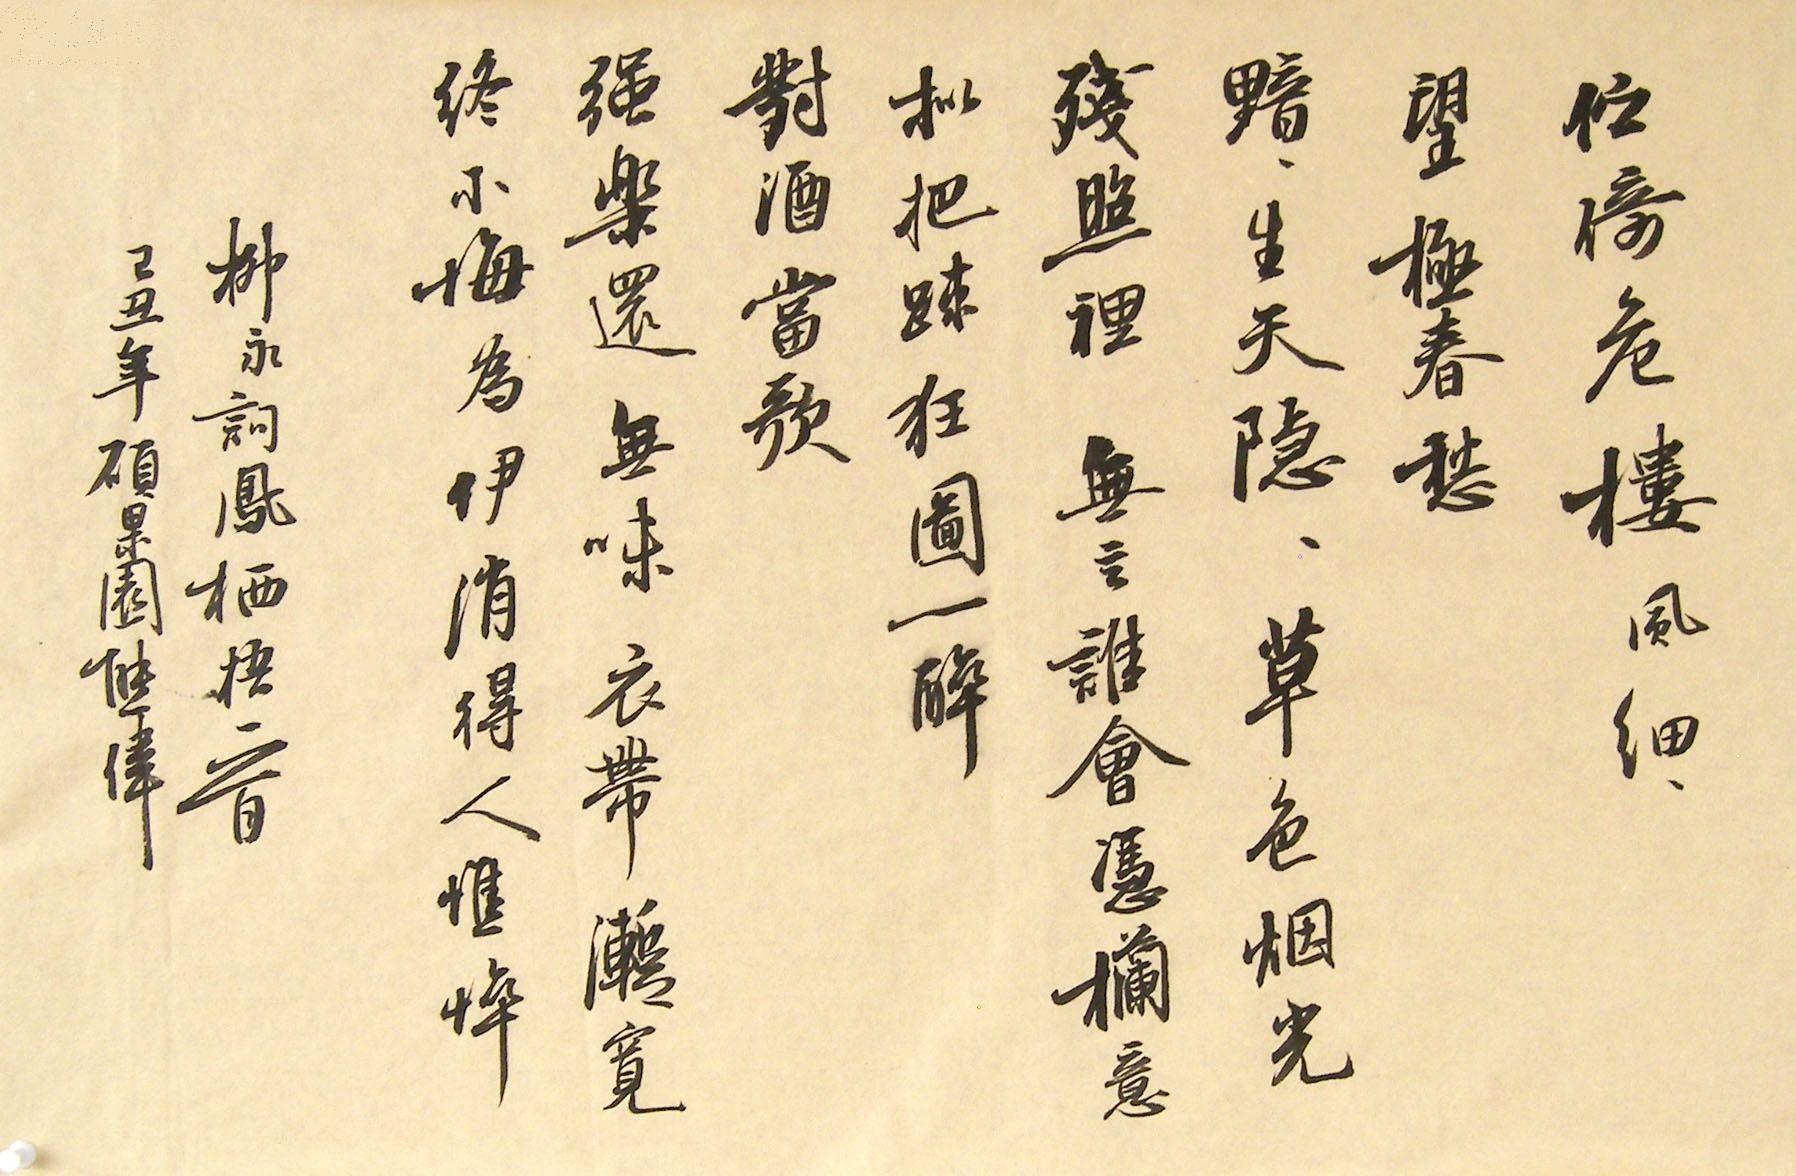 伫倚危樓風細、
望極春愁
黯、生天隐、草色烟光
殘照裡無言誰會憑欄意
拟把踈狂圖一醉
對酒當歌
强樂還無味衣帶漸寬
終不悔為伊消得人憔悴
柳永詞鳳栖梧一首
己丑年碩果園 偉